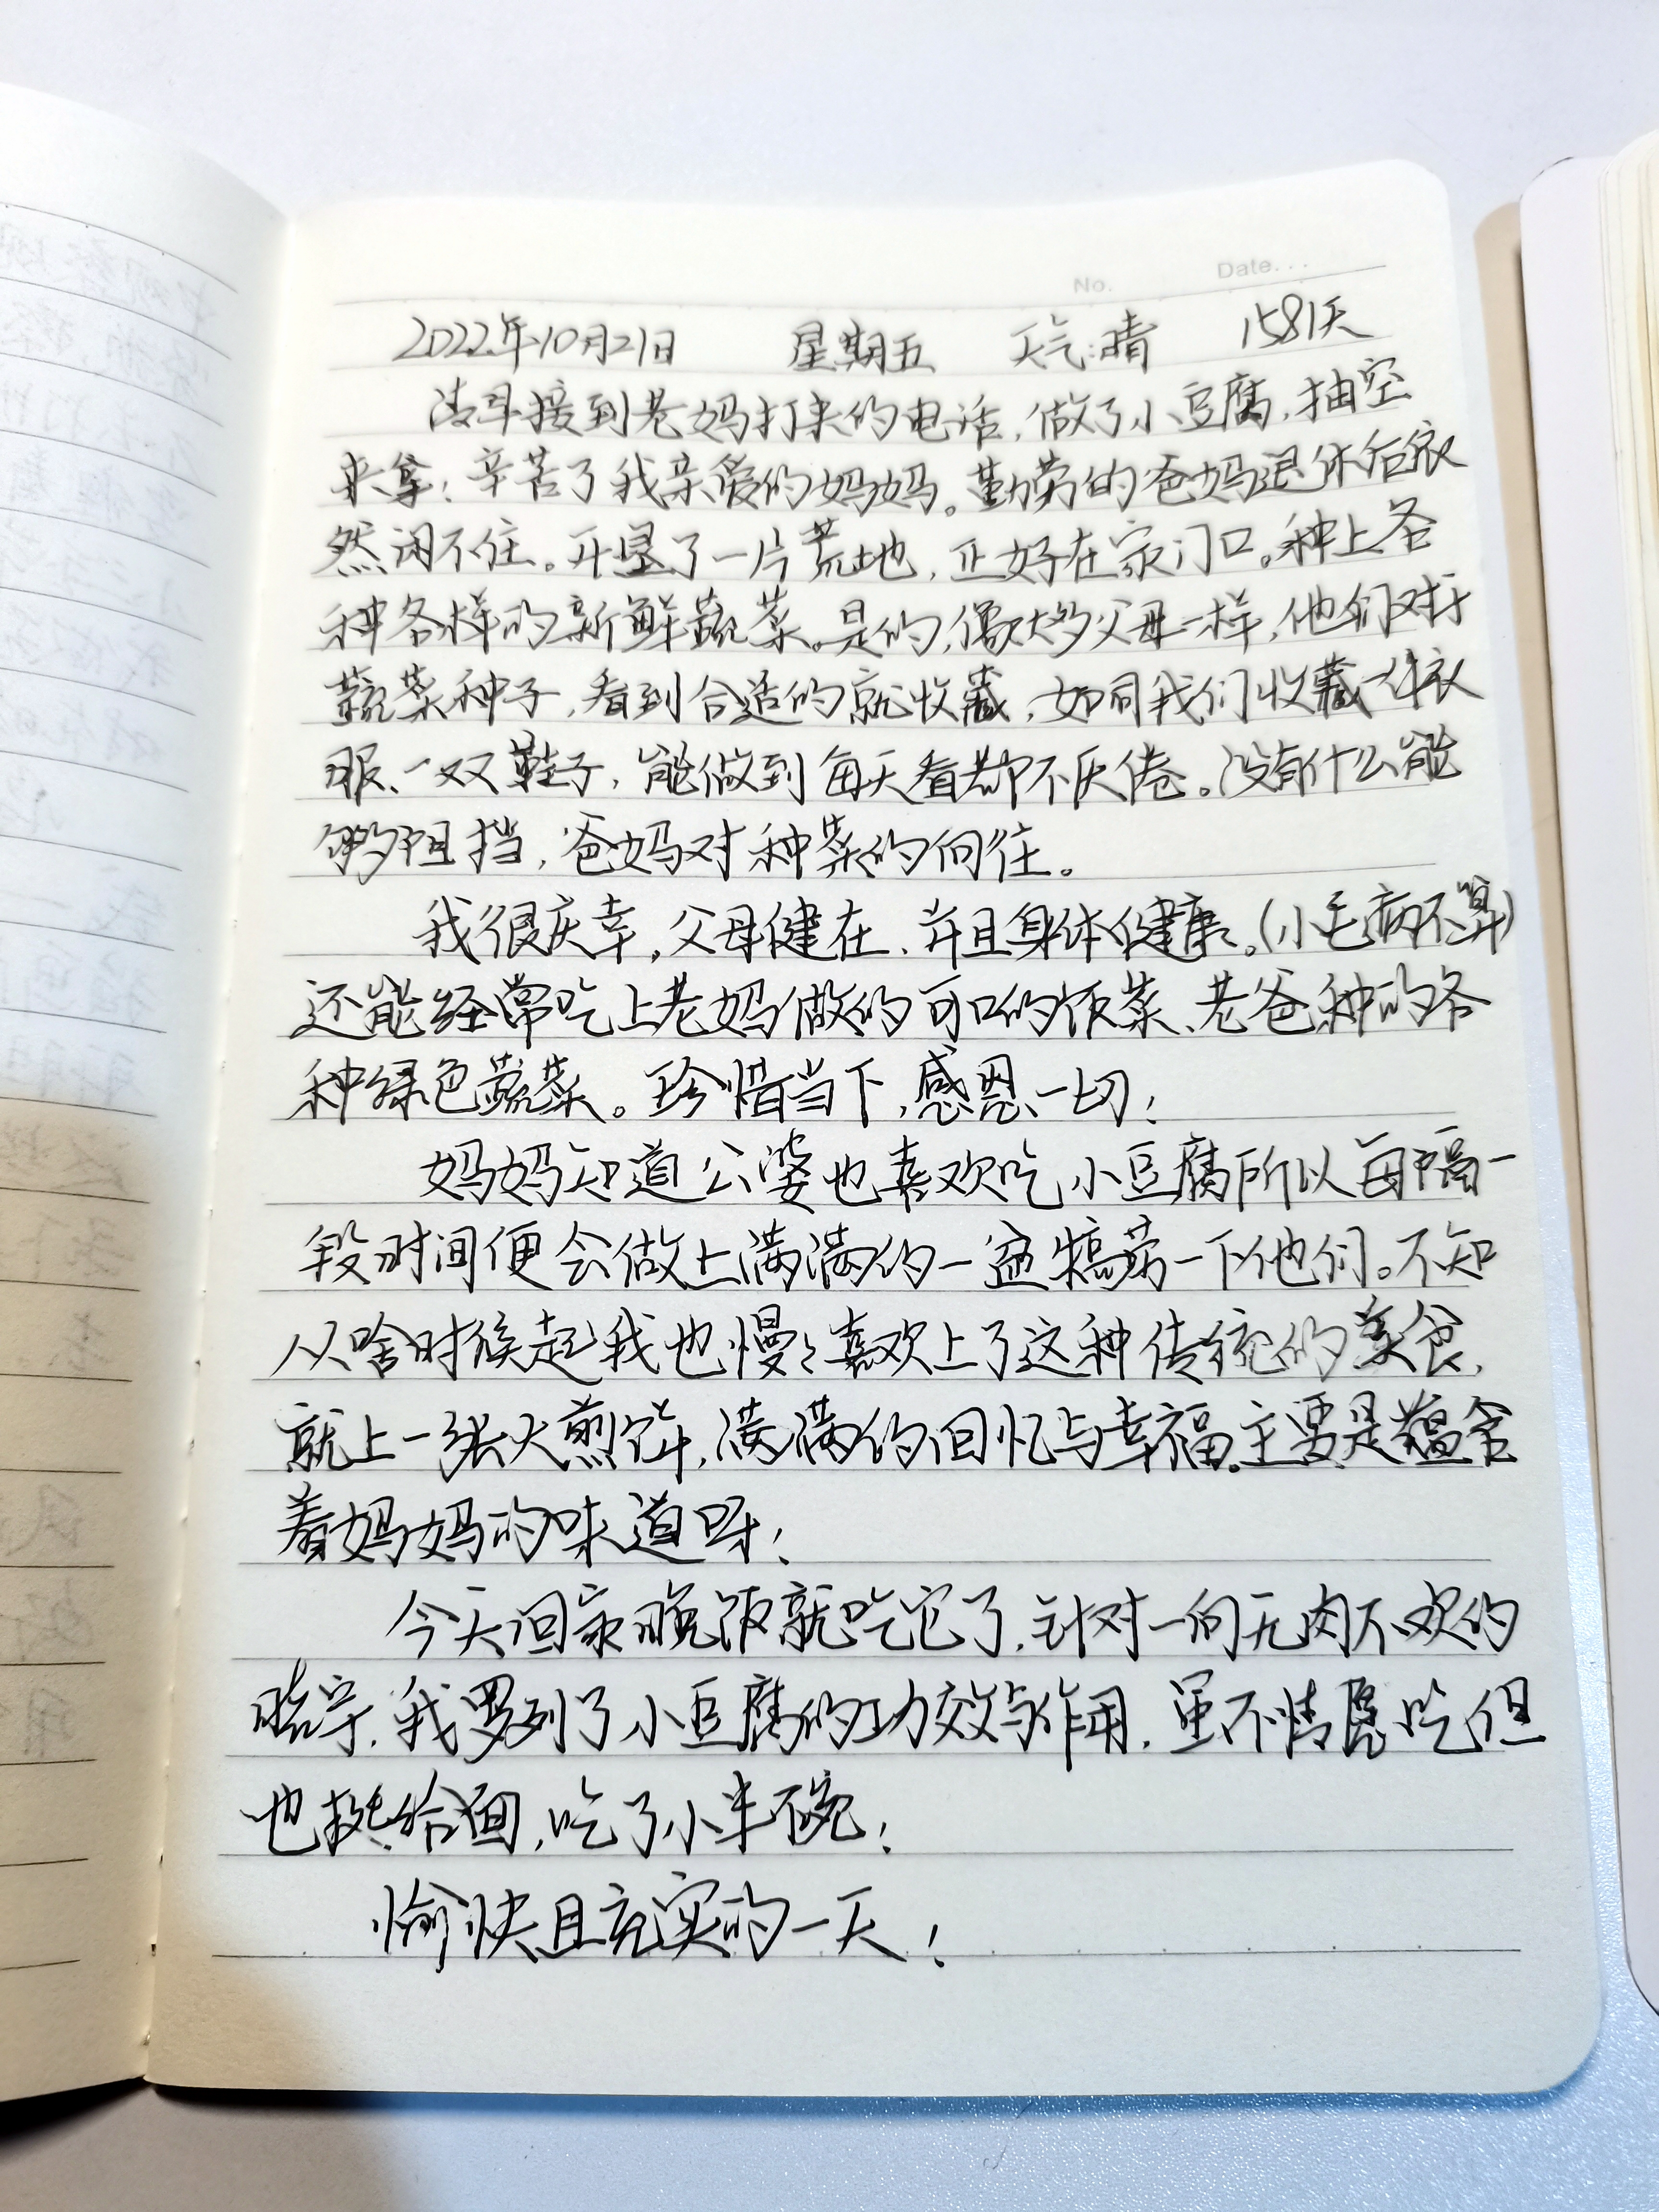 No.
Date...
2022年10月21日 星期五 天气:晴 1581天
清早接到老妈打来的电话,做了小豆腐,抽空
来拿!辛苦了我亲爱的妈妈。勤劳的爸妈退休后依
然闲不住。开垦了一片荒地,正好在家门口。种上各
种各样的新鲜蔬菜。是的,像大多父母一样,他们对于
蔬菜种子,看到合适的就收藏,如同我们收藏一件衣
服、一双鞋子,能做到每天看都不厌倦。没有什么能
够阻挡,爸妈对种菜的向往。
我很庆幸,父母健在、并且身体健康。(小毛病不算)
还能经常吃上老妈做的可口的饭菜、老爸种的各
种绿色蔬菜。珍惜当下,感恩一切!
妈妈知道公婆也喜欢吃小豆腐所以每隔一
段时间便会做上满满的一盆犒劳一下他们。不知
从啥时候起我也慢慢喜欢上了这种传统的美食,
就上一张大煎饼,满满的回忆与幸福。主要是蕴含
着妈妈的味道呀!
今天回家晚饭就吃它了,针对一向无肉不欢的
晗宇,我罗列了小豆腐的功效与作用,虽不情愿吃但
也挺给面,吃了小半碗!
愉快且充实的一天!